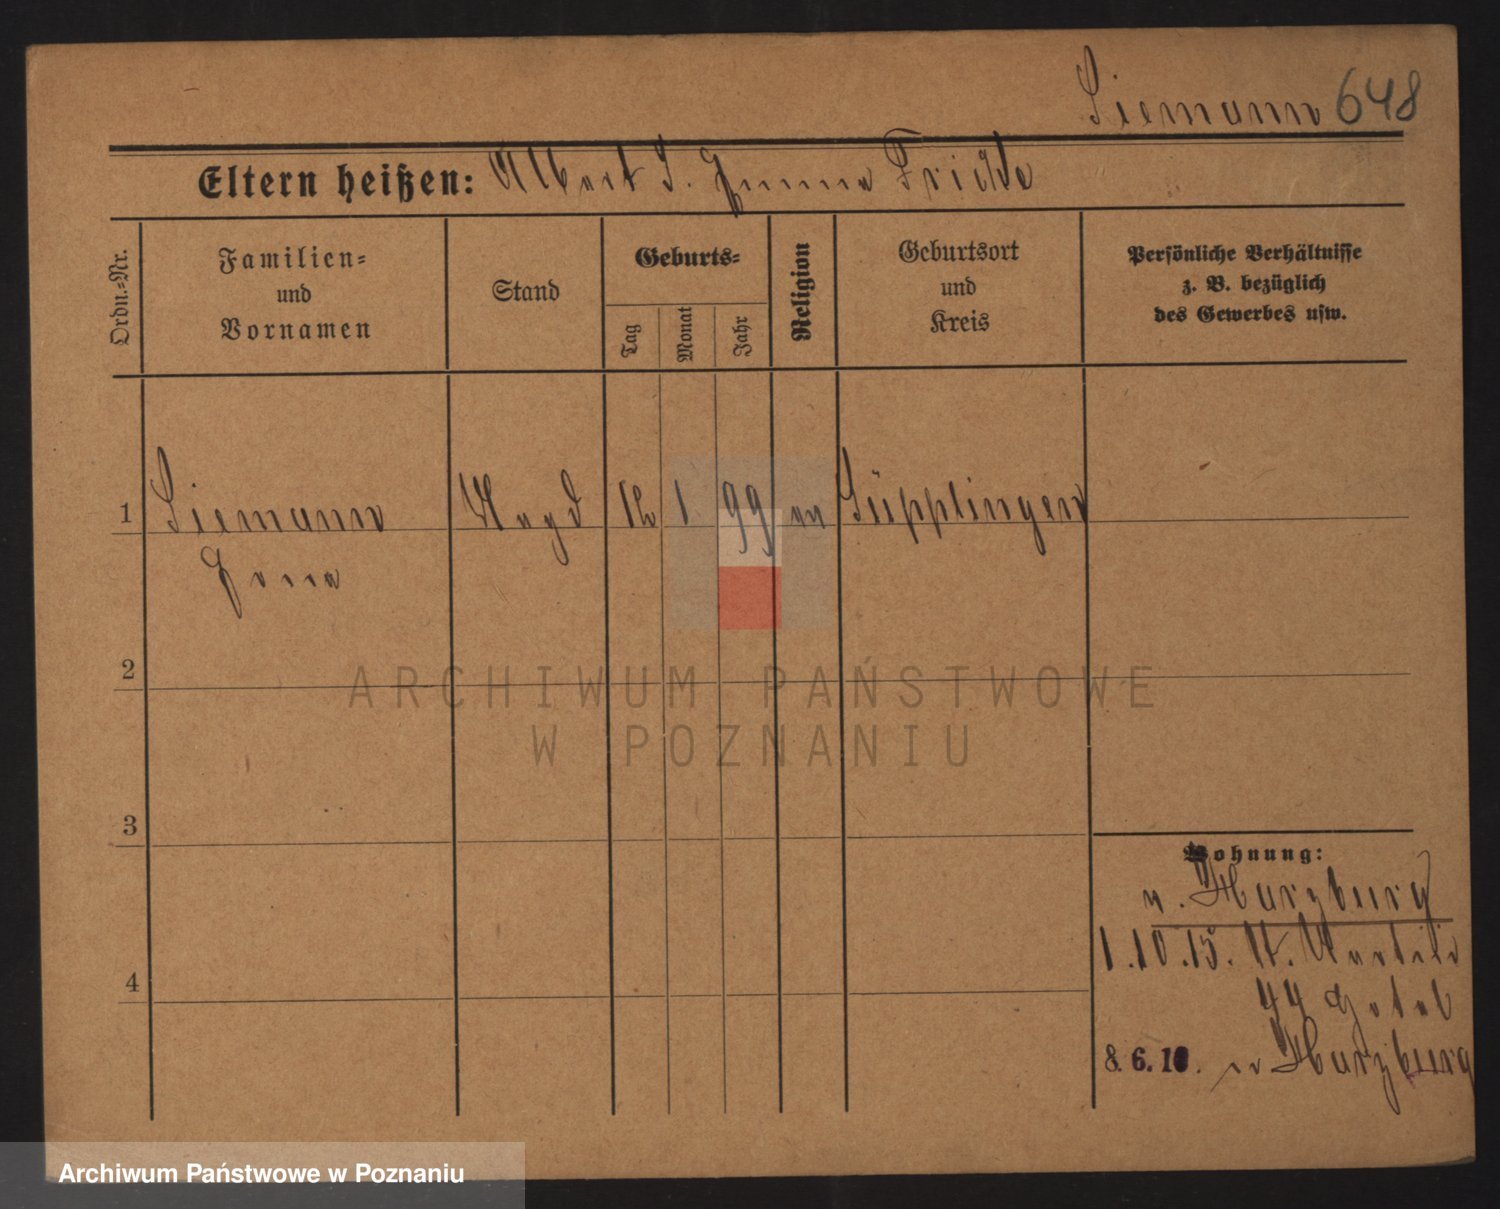 Siemann 648
Eltern heißen: Albert S. Emma Fricke
Ordn.-Nr.
Familien-
und
Vornamen
Stand
Geburts-
Tag
Monat
Jahr
Religion
Geburtsort
und
Kreis
Persönliche Verhältnisse
z. B. bezüglich
des Gewerbes usw.
1 Siemann Magd 12 1 99 Süpplingen
2
ARCHIWUM PAŃSTWOWE
W POZNANIU
3
Wohnung:
n. Harzburg
1.10.15. St. Martin
44 Hotel
8. 6. 16. n Harzburg
4
Archiwum Państwowe w Poznaniu